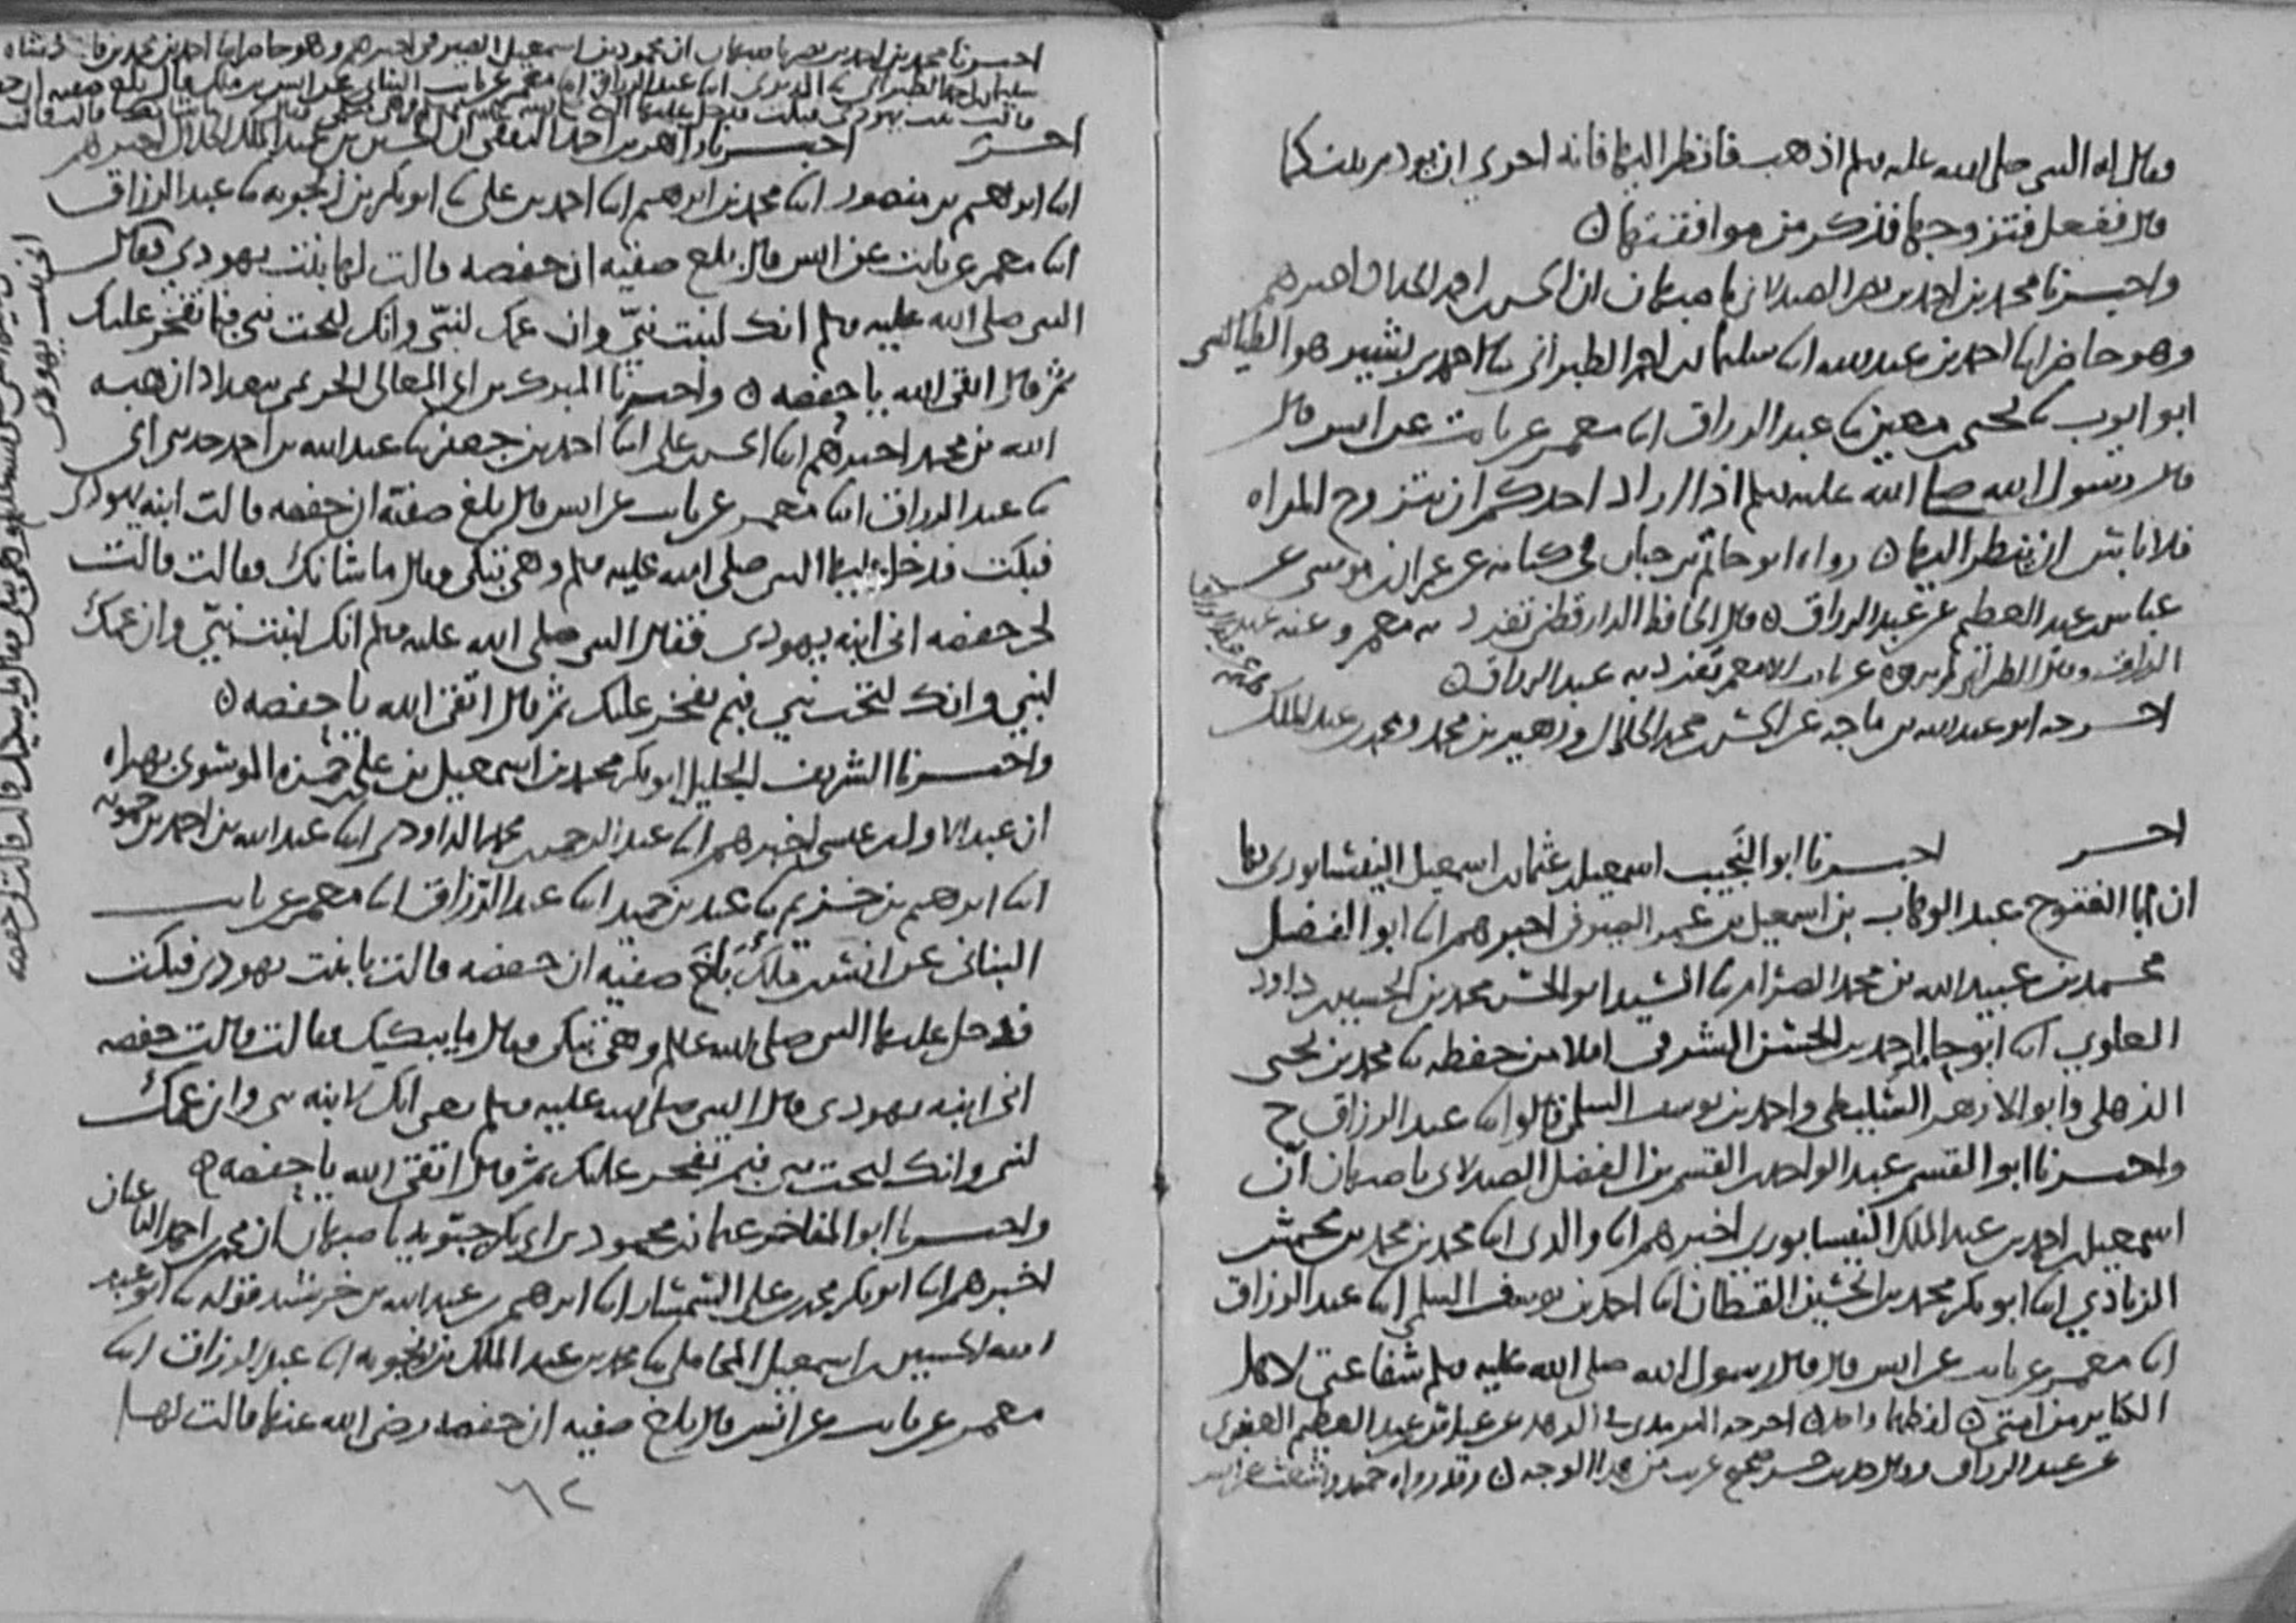 فقال له النبي صلى الله عليه وسلم اذهب فانظر اليها فانه احرى ان يودم بينكما
قال ففعل فتزوجها فذكر من موافقتها ٥
واخبرنا محمد بن احمد بن نصر الصيدلاني باصبهان ان الحسن بن احمد الحداد اخبرهم
وهو حاضر ابنا احمد بن عبد الله ابنا سليمن بن احمد الطبراني ثنا احمد بن بشير هو الطيالسي
ابو ايوب ثنا يحيى بن معين ثنا عبد الرزاق ابنا معمر عن ثابت عن انس قال
قال رسول الله صلى الله عليه وسلم اذا اراد احدكم ان يتزوج المراه
فلا باس ان ينظر اليها ٥ رواه ابو حاتم بن حبان في كتابه عن عمران بن موسى عن
عباس بن عبد العظيم عن عبد الرزاق ٥ قال الحافظ الدارقطني تفرد به معمر وعنه عبد
الرزاق وقال الطبراني لم يروه عن ثابت الا معمر تفرد به عبد الرزاق ٥
اخرجه ابو عبد الله بن ماجه عن الحسن بن محمد الخلال وزهير بن محمد ومحمد بن عبد الملك
اخر اخبرنا ابو النجيب اسمعيل بن عثمان بن اسمعيل النيسابوري بها
ان ابا الفتوح عبد الوهاب بن اسمعيل بن عمر الصوفي اخبرهم ابنا ابو الفضل
محمد بن عبيد الله بن محمد الصرام ثنا السيد ابو الحسن محمد بن الحسين بن داود
العلوي ابنا ابو حامد احمد بن الحسن الشرقي املا من حفظه ثنا محمد بن يحيى
الذهلي وابو الازهر السليطي واحمد بن يوسف السلمي قالوا ابنا عبد الرزاق ح
واخبرنا ابو القسم عبد الواحد بن القسم بن الفضل الصيدلاني باصبهان ان
اسمعيل بن احمد بن عبد الملك النيسابوري اخبرهم ابنا والدي ابنا محمد بن محمد بن محمش
الزيادي ابنا ابو بكر محمد بن الحسين القطان ابنا احمد بن يوسف السلمي ابنا عبد الرزاق
ابنا معمر عن ثابت عن انس قال قال رسول الله صلى الله عليه وسلم شفاعتي لاهل
الكباير من امتي ٥ لفظهما واحد ٥ اخرجه الترمذي في الزهد عن عباس بن عبد العظيم العنبري
عن عبد الرزاق وقال حديث حسن صحيح غريب من هذا الوجه ٥ وقد رواه
اخبرنا محمد بن احمد بن نصر باصبهان ان محمود بن اسمعيل الصيرفي اخبرهم وهو حاضر ابنا احمد بن محمد بن
سليمن بن احمد الطبراني ثنا الدبري ابنا عبد الرزاق ابنا معمر عن ثابت البناني عن انس بن مالك قال بلغ صفيه ان
قالت بنت يهودي فبكت فدخل عليها النبي
اخر اخبرنا زاهر بن احمد الثقفي ان الحسين بن عبد الملك الخلال اخبرهم
ابنا ابرهيم بن منصور ابنا محمد بن ابرهيم ابنا احمد بن علي ثنا ابو بكر بن زنجويه ثنا عبد الرزاق
ابنا معمر عن ثابت عن انس قال بلغ صفيه ان حفصه قالت لها بنت يهودي فقال
النبي صلى الله عليه وسلم انك لبنت نبي وان عمك لنبي وانك لتحت نبي فبما تفخر عليك
ثم قال اتقي الله يا حفصه ٥ واخبرنا المبرك بن ابي المعالي الحريمي ببغداد ان هبه
الله بن محمد اخبرهم ابنا الحسن بن علي ابنا احمد بن جعفر ثنا عبد الله بن احمد حدثني ابي
ثنا عبد الرزاق ابنا معمر عن ثابت عن انس قال بلغ صفية ان حفصه قالت ابنه يهودي
فبكت فدخل عليها النبي صلى الله عليه وسلم وهي تبكي وقال ما شانك فقالت قالت
لي حفصه اني ابنه يهودي فقال النبي صلى الله عليه وسلم انك ابنت نبي وان عمك
لنبي وانك لتحت نبي فبم تفخر عليك ثم قال اتقي الله يا حفصه ٥
واخبرنا الشريف الجليل ابو بكر محمد بن اسمعيل بن علي بن حمزه الموسوي بهراه
ان عبد الاول بن عيسى اخبرهم ابنا عبد الرحمن بن محمد الداودي ابنا عبد الله بن احمد بن حمويه
ابنا ابرهيم بن خزيم ثنا عبد بن حميد ابنا عبد الرزاق ابنا معمر عن ثابت
البناني عن انس بن ملك بلغ صفيه ان حفصه قالت يا بنت يهودي فبكت
فدخل عليها النبي صلى الله عليه وسلم وهي تبكي وقال ما يبكيك فقالت قالت حفصه
اني ابنه يهودي قال النبي صلى الله عليه وسلم يعني انك لابنه نبي وان عمك
لنبي وانك لتحت نبي فبم تفخر عليك ثم قال اتقي الله يا حفصه ٥
واخبرنا ابو المفاخر عثمان بن محمود بن ابي بكر حبويه باصبهان ان محمد بن احمد الباغبان
اخبرهم ابنا ابو بكر محمد بن علي السمسار ابنا ابرهيم بن عبد الله بن خرشيد قوله ثنا ابو عبد
الله الحسين بن اسمعيل المحاملي ثنا محمد بن عبد الملك بن زنجويه ابنا عبد الرزاق ابنا
معمر عن ثابت عن انس قال بلغ صفيه ان حفصه رضي الله عنها قالت لها
٦٢